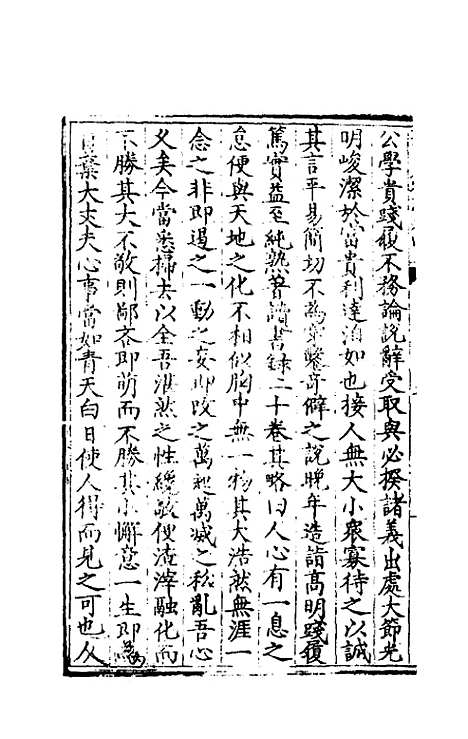 公學貴踐履不務論說辭受取與必揆諸義出處大節光
明峻潔於富貴利達泊如也接人無大小衆寡待之以誠
其言平易簡切不為穿鑿奇僻之說晚年造詣高明踐履
篤實益至純熟著讀書錄二十卷其略曰人心有一息之
怠便與天地之化不相似胸中無一物其大浩然無涯一
念之非即遏之一動之妄即改之萬起萬滅之私亂吾心
乂矣今當悉掃去以全吾湛然之性纔敬便渣滓融化而
不勝其大不敬則鄙吝即萌而不勝其小懈意一生即為
自棄大丈夫心事當如青天白日使人得而見之可也人